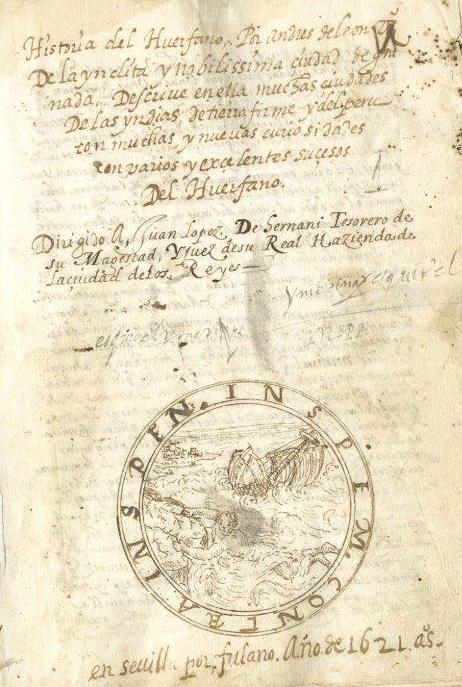 Historia del Huerfano, Por andres de leon
De la ynclita y nobilissima ciudad de gra
nada, Descrive en ella muchas ciudades
De las yndias, de tierra firme y del peru
con muchas y nuevas curiosidades
con varios y excelentes sucesos
Del Huerfano.
Dirigido A, Juan Lopez, De hernani Tesorero de
su Magestad, y Juez de su Real Hazienda de
la ciudad de los Reyes
IN SPEM CONTRA IN SPEN.
en sevilla por, fulano. Año de 1621. as.